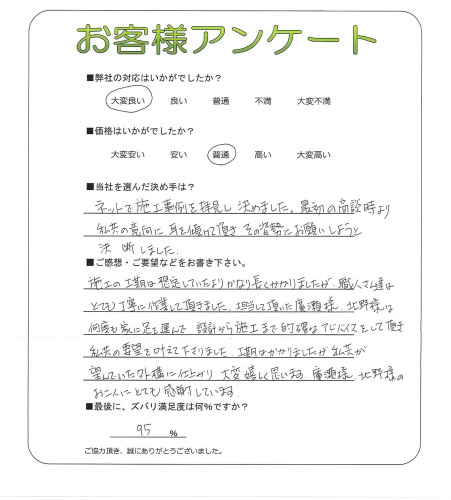 お客様アンケート
■弊社の対応はいかがでしたか？
大変良い 良い 普通 不満 大変不満
■価格はいかがでしたか？
大変安い 安い 普通 高い 大変高い
■当社を選んだ決め手は？
ネットで施工事例を拝見し決めました。最初の商談時より
私共の意向に耳を傾けて頂きその姿勢にお願いしようと
決断しました。
■ご感想・ご要望などをお書き下さい。
施工の工期は想定していたよりかなり長くかかりましたが、職人さん達は
とても丁寧に作業して頂きました。担当して頂いた廣瀬様、北野様は
何度も家に足を運んで 設計から施工まで的確なアドバイスをして頂き
私共の要望を叶えて下さりました。工期はかかりましたが私共が
望んでいた外構に仕上がり大変嬉しく思います。廣瀬様、北野様の
お二人にとても感謝しています。
■最後に、ズバリ満足度は何％ですか？
95 %
ご協力頂き、誠にありがとうございました。